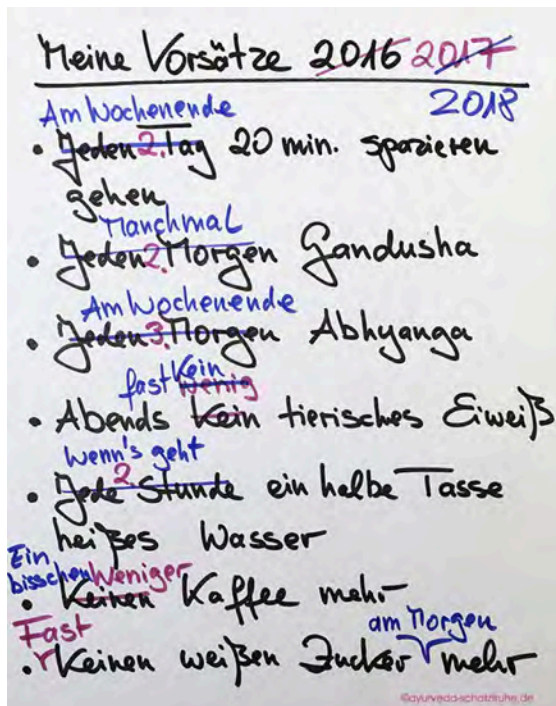 Meine Vorsätze 2016 2017
2018
Am Wochenende
• Jeden 2. Tag 20 min. spazieren
gehen
Manchmal
• Jeden 2. Morgen Gandusha
Am Wochenende
• Jeden 3. Morgen Abhyanga
fast kein wenig
• Abends kein tierisches Eiweiß
wenn's geht
• Jede 2. Stunde ein halbe Tasse
heißes Wasser
Ein
bisschen Weniger
• Keinen Kaffee mehr
Fast am Morgen
• Keinen weißen Zucker mehr
©ayurveda-schatztruhe.de